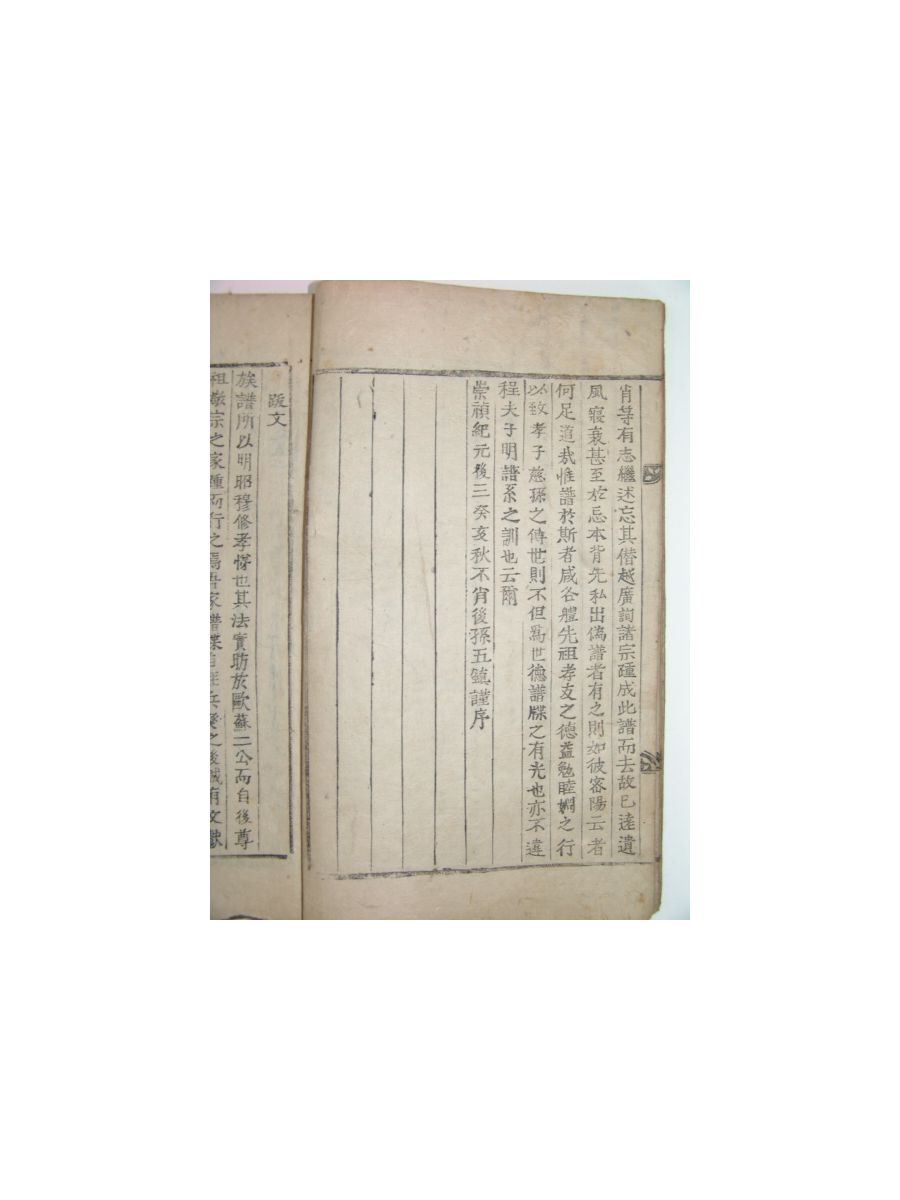 肖等有志繼述忘其僭越廣詢諸宗踵成此譜而去故已遠遺
風寢衰甚至於忘本背先私出偽譜者有之則如彼審陽云者
何足道哉惟譜於斯者咸各軆先祖孝友之德益勉睦婣之行
以致孝子慈孫之傳世則不但爲世德譜牒之有光也亦不違
程夫子明譜系之訓也云爾
崇禎紀元後三癸亥秋不肖後孫五鎮謹序
跋文
族譜所以明昭穆修孝悌也其法實昉於歐蘇二公而自後尊
祖敬宗之家踵而行之焉吾家譜牒自經兵燹之後賊有文獻